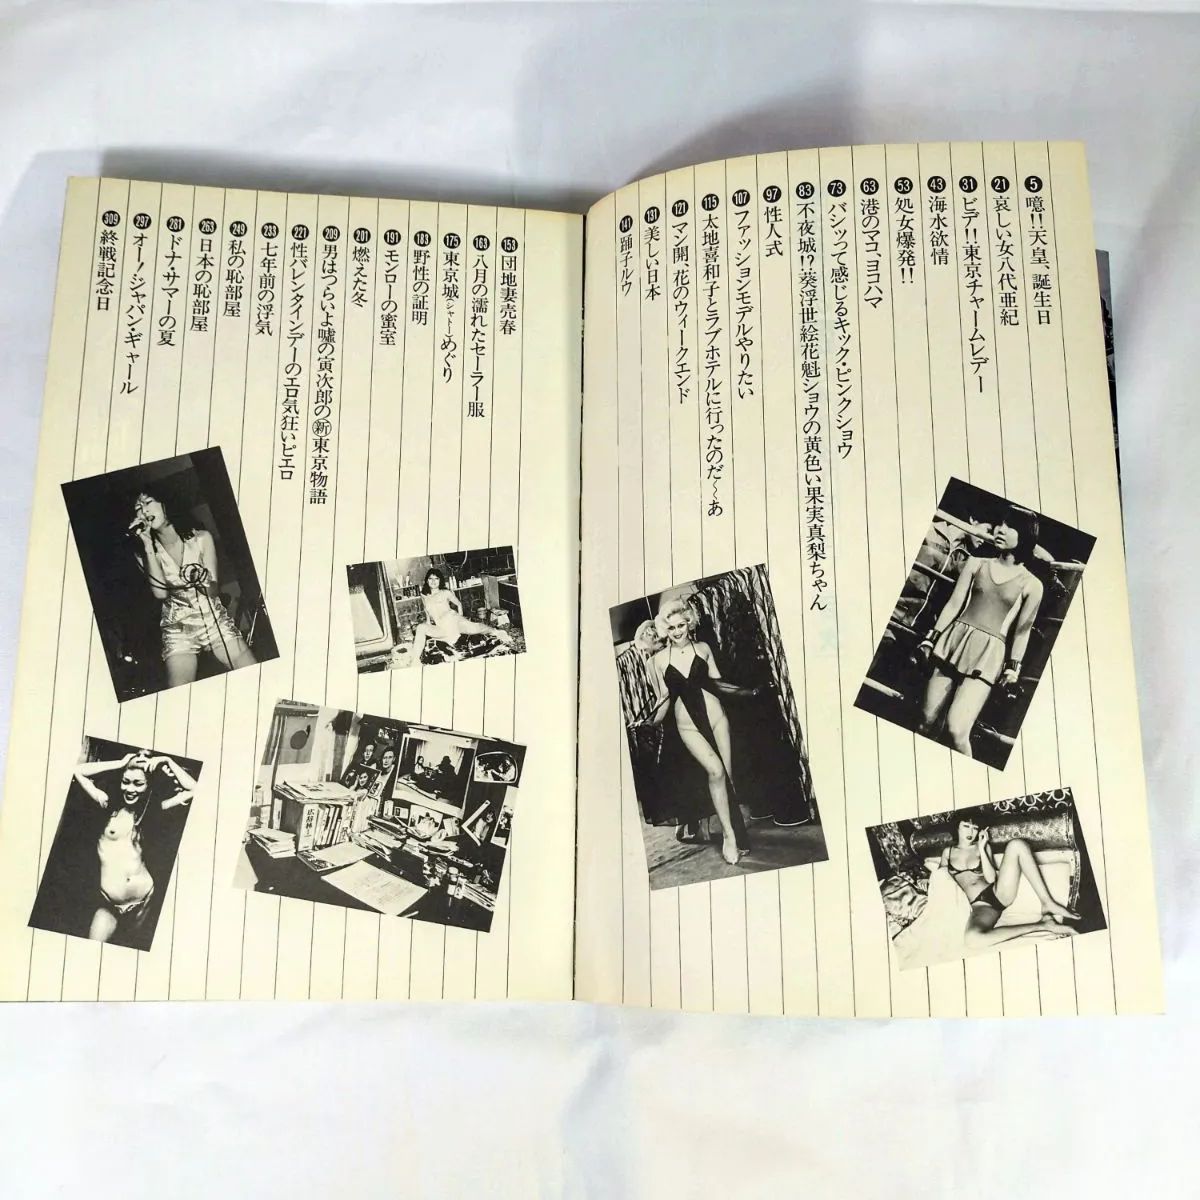 5 噫!!天皇、誕生日
21 哀しい女八代亜紀
31 ビデ!!東京チャームレデー
43 海水欲情
53 処女爆発!!
63 港のマコ、ヨコハマ
73 バシッって感じるキック・ピンクショウ
83 不夜城!?葵浮世絵花魁ショウの黄色い果実真梨ちゃん
97 性人式
107 ファッションモデルやりたい
115 太地喜和子とラブホテルに行ったのだ〜あ
121 マン開、花のウィークエンド
131 美しい日本
141 踊子ルウ
153 団地妻売春
163 八月の濡れたセーラー服
175 東京城(シャトー)めぐり
183 野性の証明
191 モンローの蜜室
201 燃えた冬
209 男はつらいよ嘘の寅次郎の㊟東京物語
221 性バレンタインデーのエロ気狂いピエロ
233 七年前の浮気
249 私の恥部屋
263 日本の恥部屋
281 ドナ・サマーの夏
297 オー!ジャパン・ギャール
309 終戦記念日